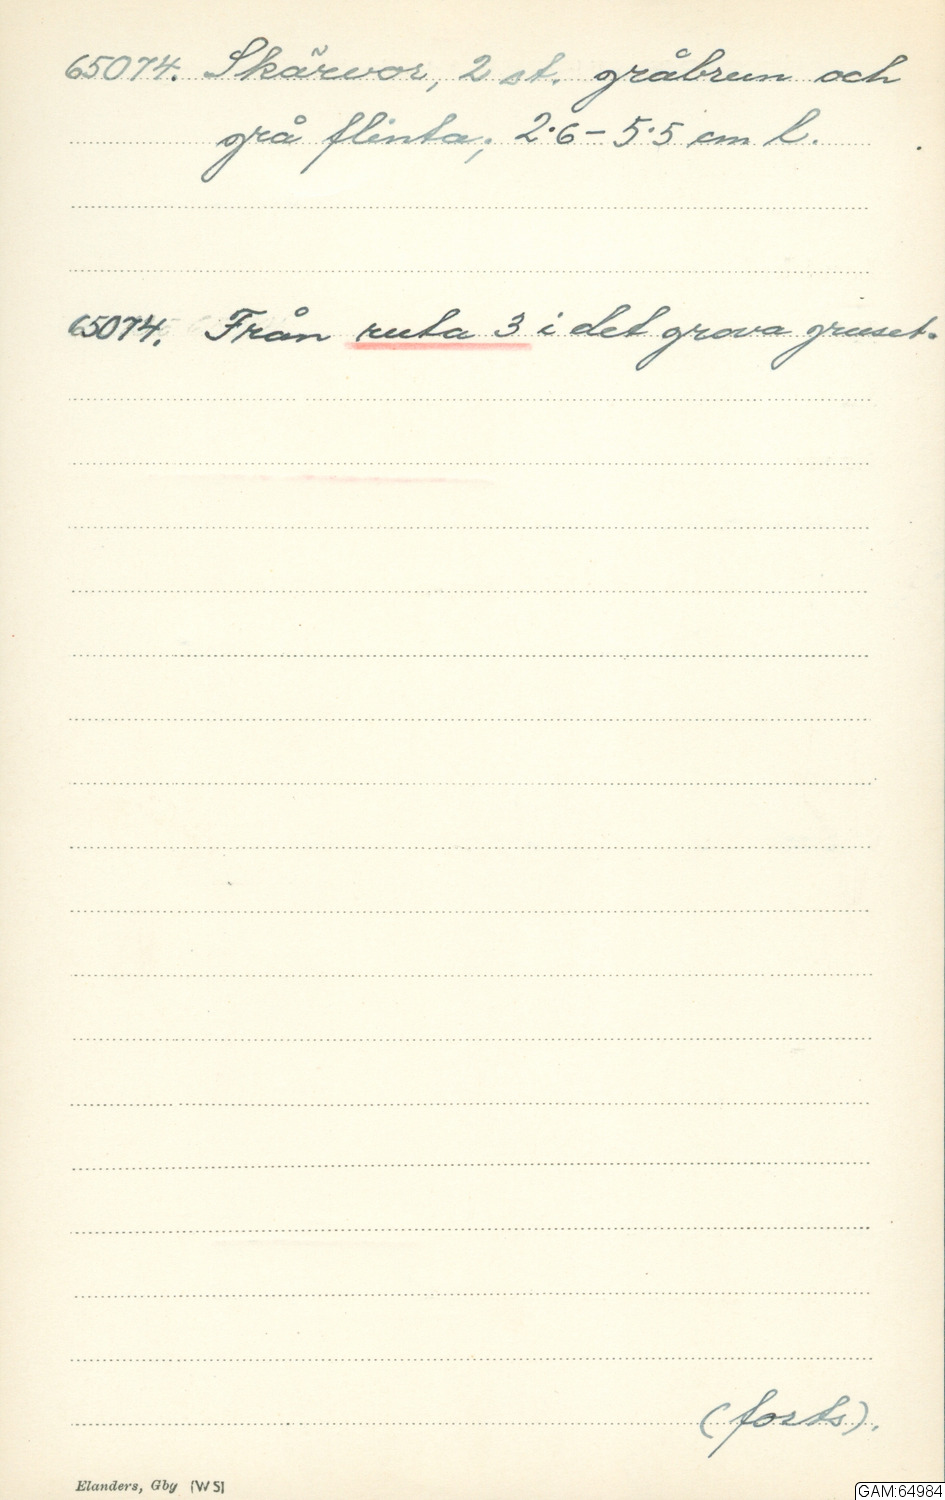 65074. Skärvor, 2 st. gråbrun och
grå flinta; 2.6 - 5.5 cm l.
65074. Från ruta 3 i det grova gruset.
(forts).
Elanders, Gby (WS)
GAM:64984